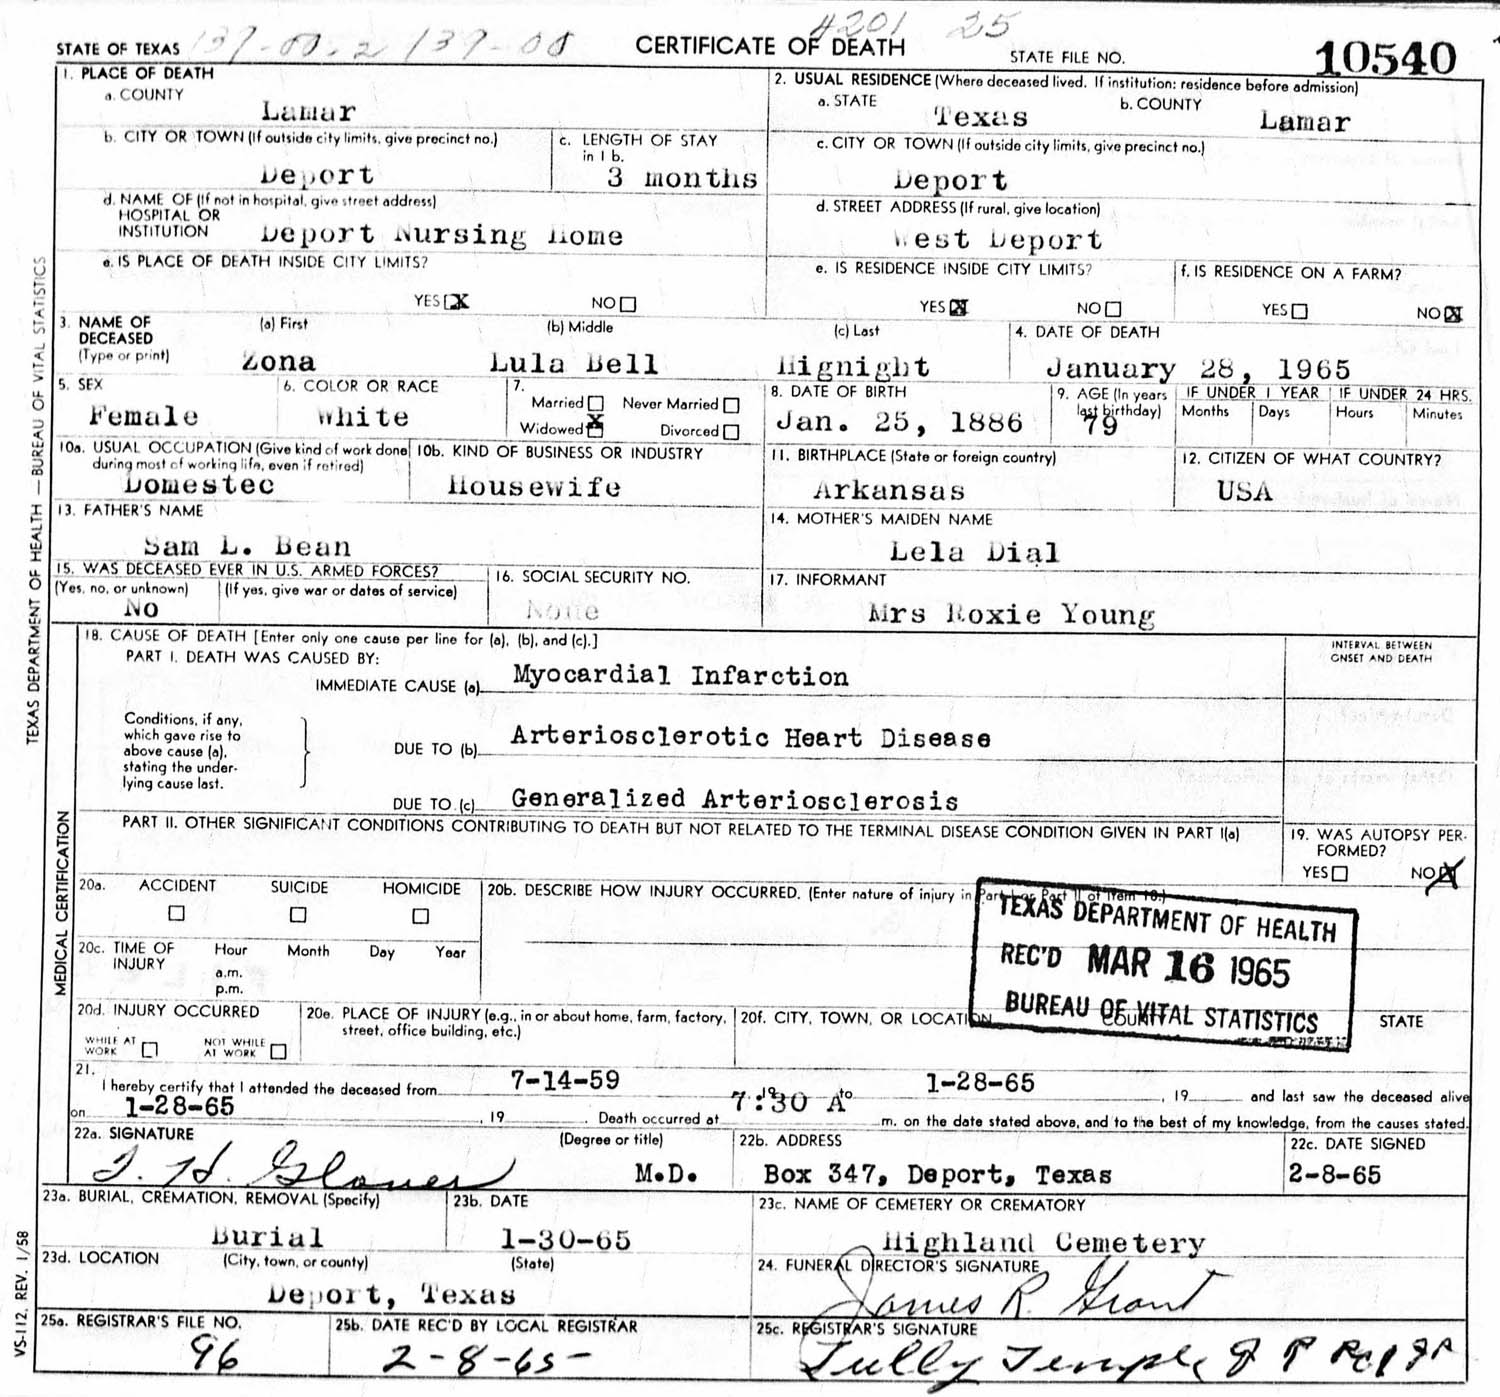 137-00-2 137-00 4201 25
STATE OF TEXAS CERTIFICATE OF DEATH STATE FILE NO. 10540
1. PLACE OF DEATH
a. COUNTY
Lamar
2. USUAL RESIDENCE (Where deceased lived. If institution: residence before admission)
a. STATE Texas b. COUNTY Lamar
b. CITY OR TOWN (If outside city limits, give precinct no.)
Deport
c. LENGTH OF STAY
in 1 b.
3 months
c. CITY OR TOWN (If outside city limits, give precinct no.)
Deport
d. NAME OF (If not in hospital, give street address)
HOSPITAL OR
INSTITUTION Deport Nursing Home
d. STREET ADDRESS (If rural, give location)
West Deport
e. IS PLACE OF DEATH INSIDE CITY LIMITS?
YES X NO
e. IS RESIDENCE INSIDE CITY LIMITS?
YES X NO
f. IS RESIDENCE ON A FARM?
YES NO X
3. NAME OF
DECEASED
(Type or print)
(a) First (b) Middle (c) Last
Zona Lula Bell Hignight
4. DATE OF DEATH
January 28, 1965
5. SEX
Female
6. COLOR OR RACE
White
7.
Married Never Married
Widowed X Divorced
8. DATE OF BIRTH
Jan. 25, 1886
9. AGE (In years
last birthday)
79
IF UNDER 1 YEAR IF UNDER 24 HRS.
Months Days Hours Minutes
10a. USUAL OCCUPATION (Give kind of work done
during most of working life, even if retired)
Domestec
10b. KIND OF BUSINESS OR INDUSTRY
Housewife
11. BIRTHPLACE (State or foreign country)
Arkansas
12. CITIZEN OF WHAT COUNTRY?
USA
13. FATHER'S NAME
Sam L. Bean
14. MOTHER'S MAIDEN NAME
Lela Dial
15. WAS DECEASED EVER IN U.S. ARMED FORCES?
(Yes, no, or unknown) (If yes, give war or dates of service)
No
16. SOCIAL SECURITY NO.
None
17. INFORMANT
Mrs Roxie Young
18. CAUSE OF DEATH [Enter only one cause per line for (a), (b), and (c).]
PART I. DEATH WAS CAUSED BY:
IMMEDIATE CAUSE (a) Myocardial Infarction
INTERVAL BETWEEN
ONSET AND DEATH
Conditions, if any,
which gave rise to
above cause (a),
stating the under-
lying cause last.
DUE TO (b) Arteriosclerotic Heart Disease
DUE TO (c) Generalized Arteriosclerosis
PART II. OTHER SIGNIFICANT CONDITIONS CONTRIBUTING TO DEATH BUT NOT RELATED TO THE TERMINAL DISEASE CONDITION GIVEN IN PART I(a)
19. WAS AUTOPSY PER-
FORMED?
YES NO X
20a. ACCIDENT SUICIDE HOMICIDE
20b. DESCRIBE HOW INJURY OCCURRED. (Enter nature of injury in Part I or Part II of Item 18.)
20c. TIME OF
INJURY
Hour Month Day Year
a.m.
p.m.
TEXAS DEPARTMENT OF HEALTH
REC'D MAR 16 1965
BUREAU OF VITAL STATISTICS
20d. INJURY OCCURRED
WHILE AT
WORK
NOT WHILE
AT WORK
20e. PLACE OF INJURY (e.g., in or about home, farm, factory,
street, office building, etc.)
20f. CITY, TOWN, OR LOCATION COUNTY STATE
21.
I hereby certify that I attended the deceased from 7-14-59 19 to 1-28-65, 19 and last saw the deceased alive
on 1-28-65, 19. Death occurred at 7:30 A m. on the date stated above, and to the best of my knowledge, from the causes stated.
22a. SIGNATURE (Degree or title)
T. H. Glover M.D.
22b. ADDRESS
Box 347, Deport, Texas
22c. DATE SIGNED
2-8-65
23a. BURIAL, CREMATION, REMOVAL (Specify)
Burial
23b. DATE
1-30-65
23c. NAME OF CEMETERY OR CREMATORY
Highland Cemetery
23d. LOCATION (City, town, or county) (State)
Deport, Texas
24. FUNERAL DIRECTOR'S SIGNATURE
James R. Grant
25a. REGISTRAR'S FILE NO.
96
25b. DATE REC'D BY LOCAL REGISTRAR
2-8-65
25c. REGISTRAR'S SIGNATURE
Tully Temple J P
TEXAS DEPARTMENT OF HEALTH — BUREAU OF VITAL STATISTICS
MEDICAL CERTIFICATION
VS-112, REV. 1/58